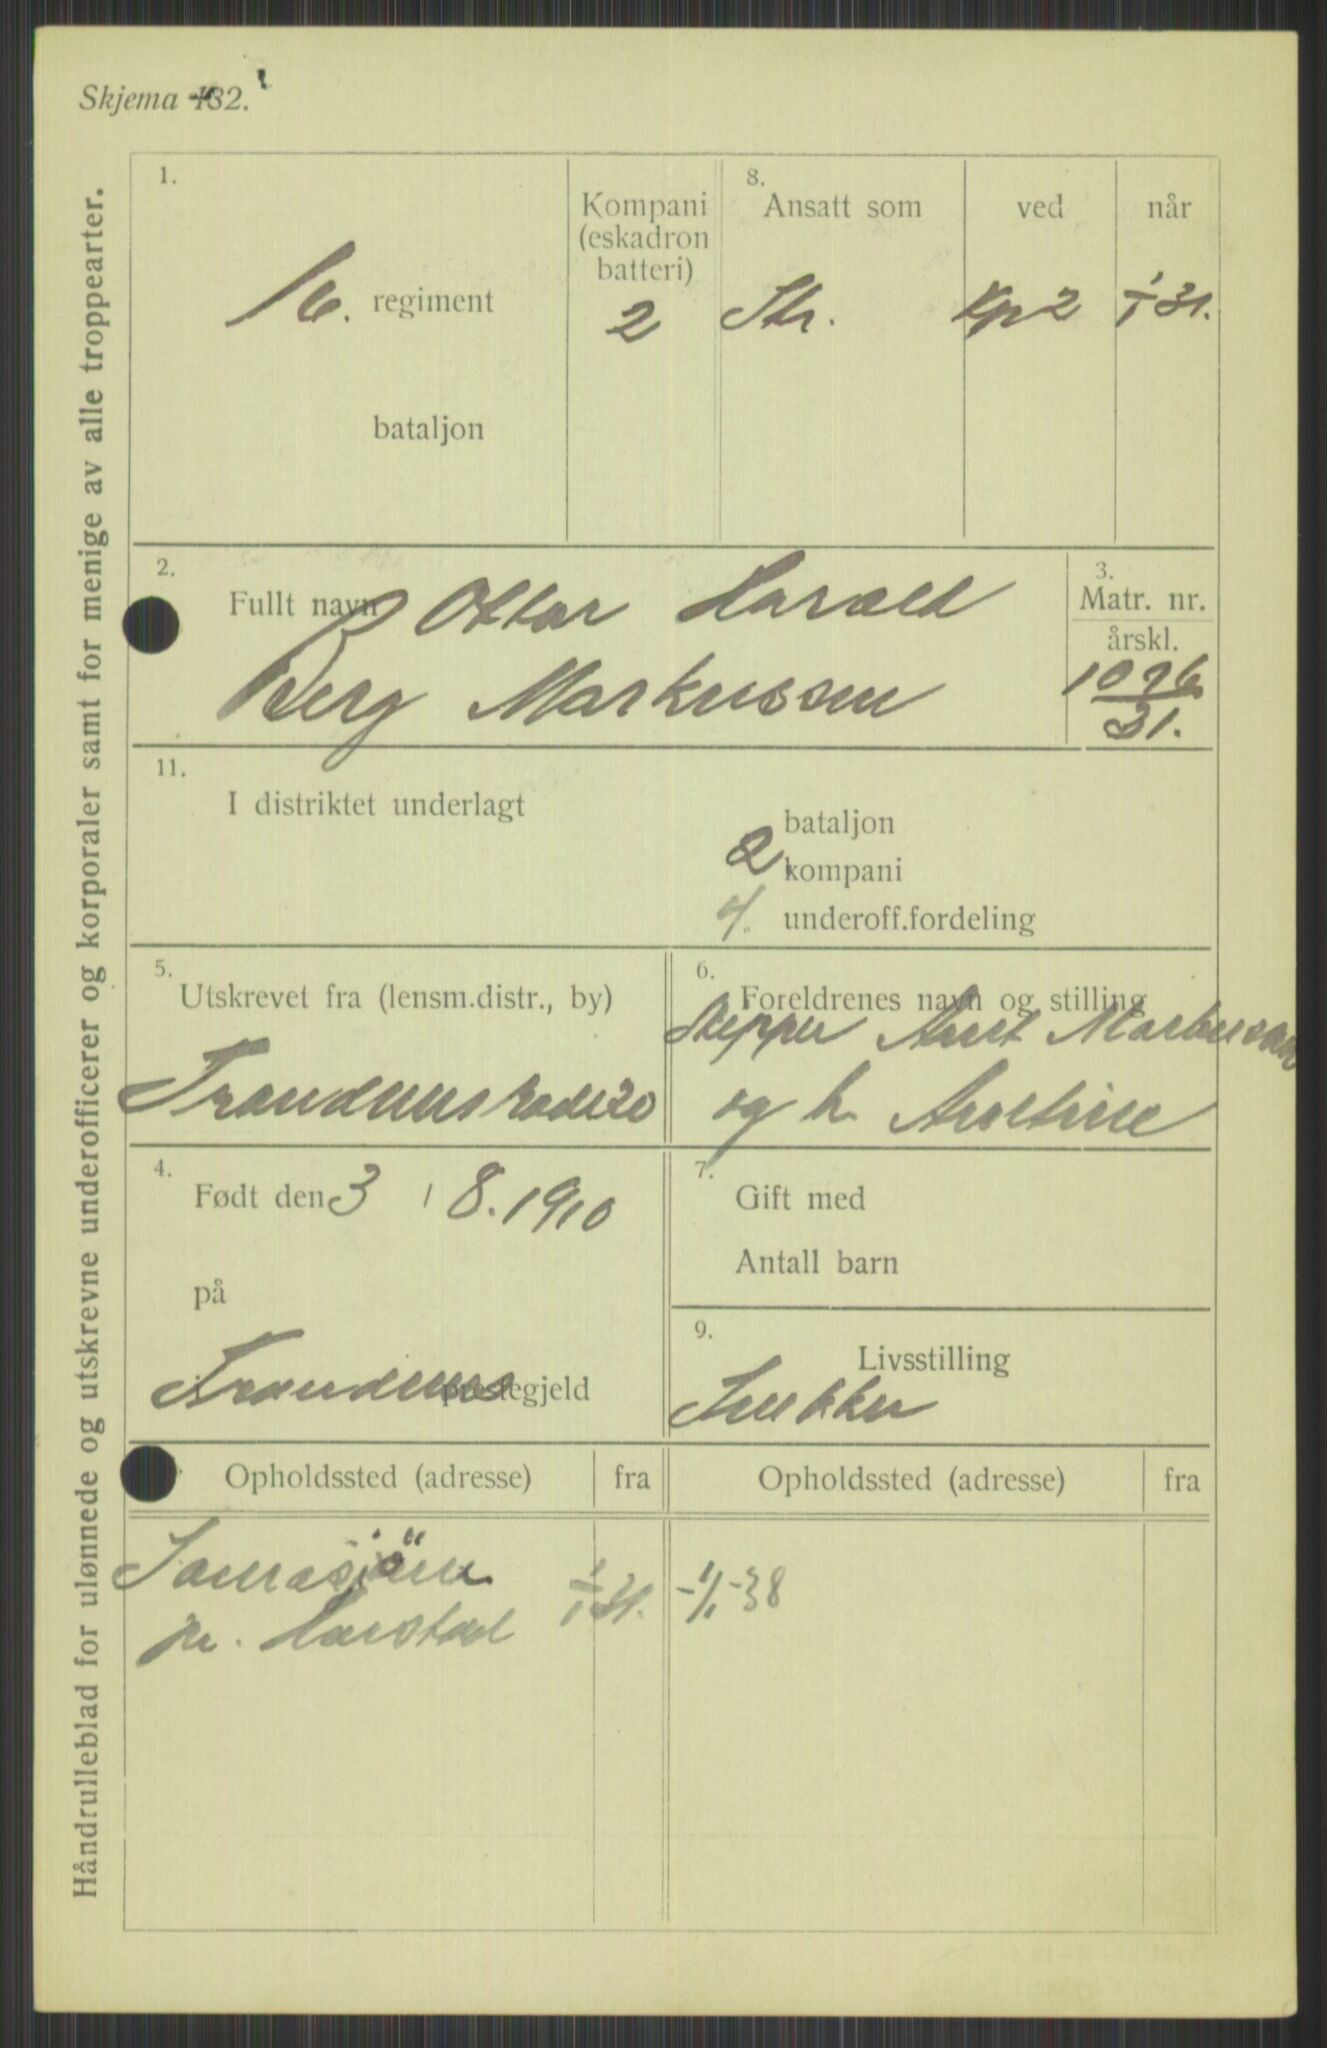 Skjema 132.
Håndrulleblad for ulønnede og utskrevne underofficerer og korporaler samt for menige av alle troppearter.
1.
16. regiment
bataljon
Kompani
(eskadron
batteri)
2
8.
Ansatt som
Str.
ved
Kp 2
når
1/1 31.
2.
Fullt navn Ottar Harald
Berg Markussen
3.
Matr. nr.
årskl.
1026
31.
11.
I distriktet underlagt
bataljon
2 kompani
4. underoff.fordeling
5.
Utskrevet fra (lensm.distr., by)
Trondenes
6.
Foreldrenes navn og stilling
Skipper Markussen
og h.
4.
Født den 3 / 8. 1910
på
Trondenes prestegjeld
7.
Gift med
Antall barn
9.
Livsstilling
Snekker
Opholdssted (adresse)
fra
Opholdssted (adresse)
fra
Samasjöen 1/1 31. -1/1-38
pr. Harstad